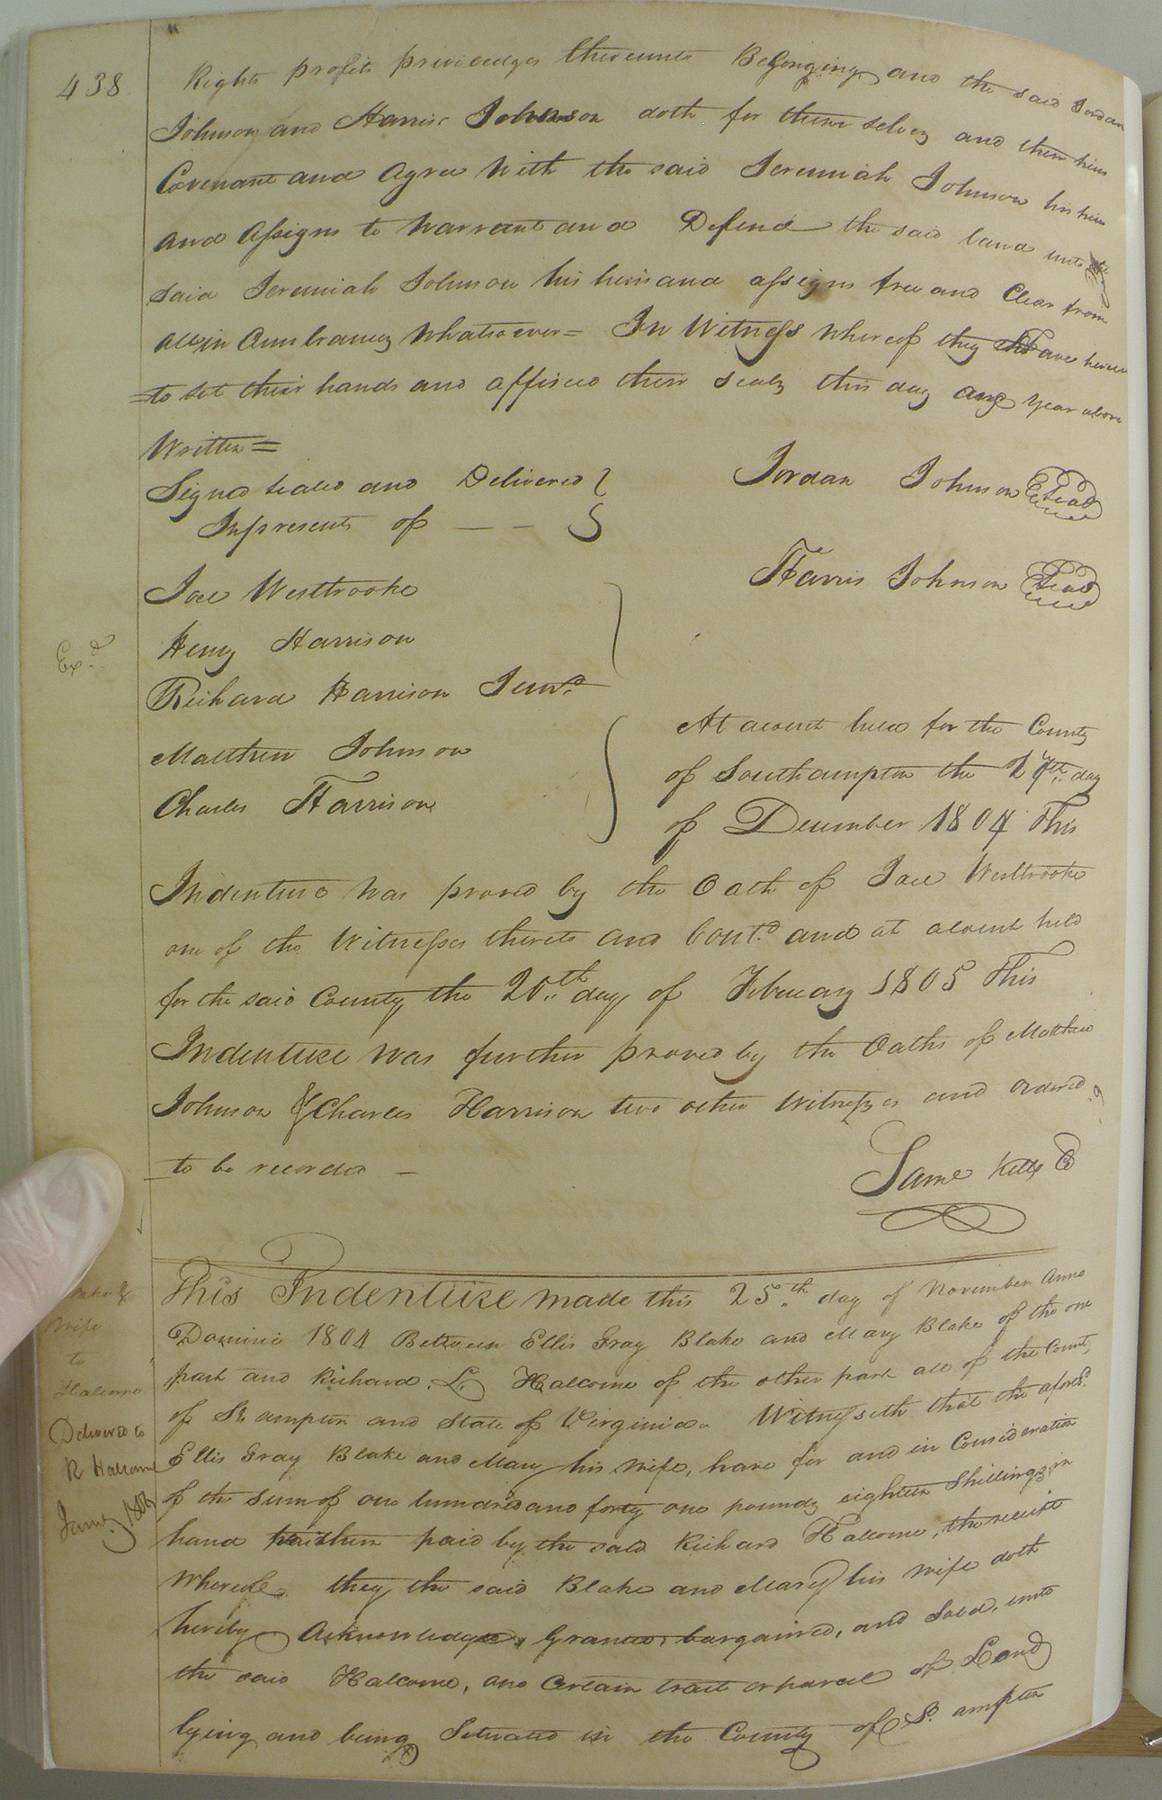 438
Rights profits priviledges thereunto Belonging and the said Jordan
Johnson and Harris Johnson doth for them selves and their heirs
Covenant and Agree With the said Jeremiah Johnson his heirs
and Assigns to Warrant and Defend the said land unto the
said Jeremiah Johnson his heirs and assigns free and Clear from
all in Cumbrances Whatsoever = In Witness whereof they have hereun
=to set their hands and affixed their seals this day and year above
Written =
Signed sealed and Delivered
Inpresents of — —
Jordan Johnson Seal
Harris Johnson Seal
Joel Westbrooke
Henry Harrison
Exd
Richard Harrison Junr
Matthew Johnson
Charles Harrison
At acourt held for the County
of Southampton the 17th day
of December 1804 This
Indenture was proved by the Oath of Joel Westbrooke
one of the Witnesses thereto and Contd and at acourt held
for the said County the 20th day of February 1805 This
Indenture was further proved by the Oaths of Matthew
Johnson & Charles Harrison two other Witnesses and ordered
to be recorded —
Same Kells C
This Indenture made this 25th day of November Anno
Domini 1804 Between Ellis Gray Blake and Mary Blake of the one
part and Richard L. Halcome of the other part all of the County
of S. ampton and State of Virginia Witnesseth that the aforesd
Ellis Gray Blake and Mary his wife, have for and in Consideration
of the sum of one hundred and forty one pounds eighteen Shillings in
hand paid by the said Richard Halcome, the receipt
Whereof they the said Blake and Mary his wife doth
hereby Acknowledge, Granted, bargained, and Sold, unto
the said Halcome, one Certain tract or parcel of Land
lying and being Situated in the County of S. ampton
Blake &
Wife
to
Halcome
Delivered to
R Halcome